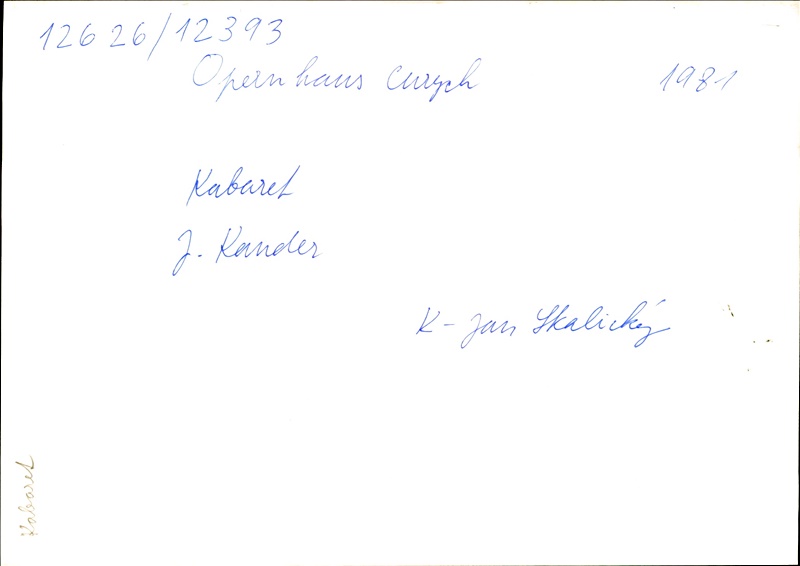 12626/12393
Opernhaus Curych 1981
Kabaret
J. Kander
K - Jan Skalický
Kabaret